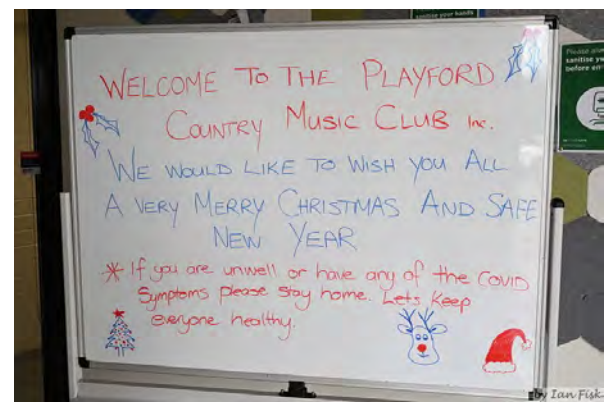 sanitise your hands
Please
sanitise
before
WELCOME TO THE PLAYFORD
COUNTRY MUSIC CLUB Inc.
WE WOULD LIKE TO WISH YOU ALL
A VERY MERRY CHRISTMAS AND SAFE
NEW YEAR
* If you are unwell or have any of the COVID
Symptoms please stay home. Lets Keep
everyone healthy.
by Ian Fisk